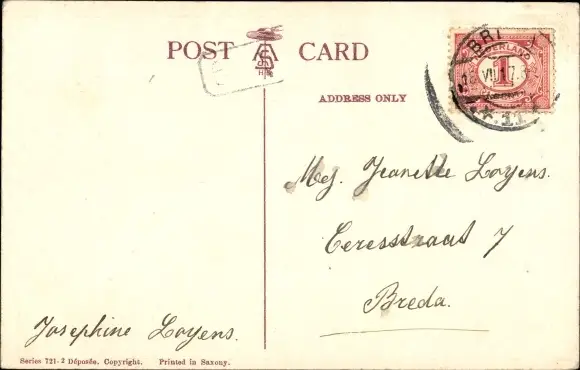 POST CARD
ADDRESS ONLY
NEDERLAND
1
Mej. Jeanette Loyens.
Ceresstraat 7
Breda.
Josephine Loyens.
Series 721-2 Déposée. Copyright. Printed in Saxony.